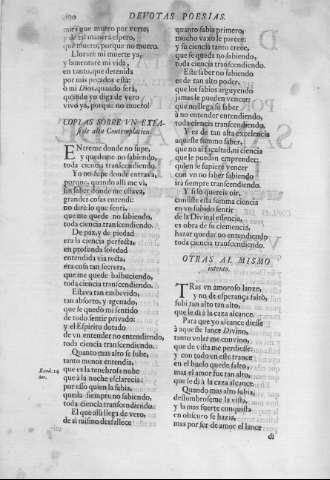 DEVOTAS POESIAS.
que muero por verte,
y de tal manera espero,
que muero, porque no muero.
Lloraré mi muerte ya,
y lamentaré mi vida,
en tanto, que detenida
por mis pecados está:
ô mi Dios, quando será,
quando yo diga de vero,
vivo ya, porque no muero?
COPLAS SOBRE VN EXTA-
sis de alta Contemplacion.
ENtréme donde no supe,
y quedéme no sabiendo,
toda ciencia transcendiendo.
Yo no supe donde entrava,
porque, quando alli me vi,
sin saber donde me estava,
grandes cosas entendi:
no diré lo que senti,
que me quedé no sabiendo,
toda ciencia transcendiendo.
De paz, y de piedad
era la ciencia perfecta,
en profunda soledad
entendida via recta,
era cosa tan secreta,
que me quedé balbuciendo,
toda ciencia transcendiendo.
Estava tan embevido,
tan absorto, y agenado,
que se quedó mi sentido
de todo sentir privado:
y el Espiritu dotado
de vn entender no entendiendo,
toda ciencia transcendiendo.
Quanto mas alto se sube,
tanto menos entendia,
que es la tenebrosa nube
que á la noche esclarecia:
por esso quien la sabia,
queda siempre no sabiendo,
toda ciencia transcendiendo.
El que alli llega de vero,
de si mismo desfallece
quanto sabia primero,
mucho vaxo le parece:
y su ciencia tanto crece,
que se queda no sabiendo,
toda ciencia transcendiendo.
Este saber no sabiendo
es de tan alto poder,
que los sabios arguyendo
jamas le pueden vencer:
que no llega su saber
à no entender entendiendo,
toda ciencia transcendiendo.
Y es de tan alta excelencia
aqueste summo saber,
que no ai facultad, ni ciencia
que le puedan emprender:
quien se supiere vencer
con vn no saber sabiendo
irá siempre transcendiendo.
Y si lo quereis oir,
consiste esta summa ciencia
en vn subido sentir
de la Divinal essencia,
es obra de su clemencia,
hazer quedar no entendiendo
toda ciencia transcendiendo.
OTRAS AL MISMO
intento.
TRas vn amoroso lance,
y no de esperança falto,
subí tan alto tan alto,
que le dí à la caza alcance.
Para que yo alcance diesse
à aqueste lance Divino,
tanto volar me convino,
que de vista me perdiesse:
y con todo en este trance
en el buelo quedé falto,
mas el amor fue tan alto,
que le dí à la caza alcance.
Quando mas alto subia,
deslumbróseme la vista,
y la mas fuerte conquista
en obscuro se hazia,
mas por ser de amor el lance
di